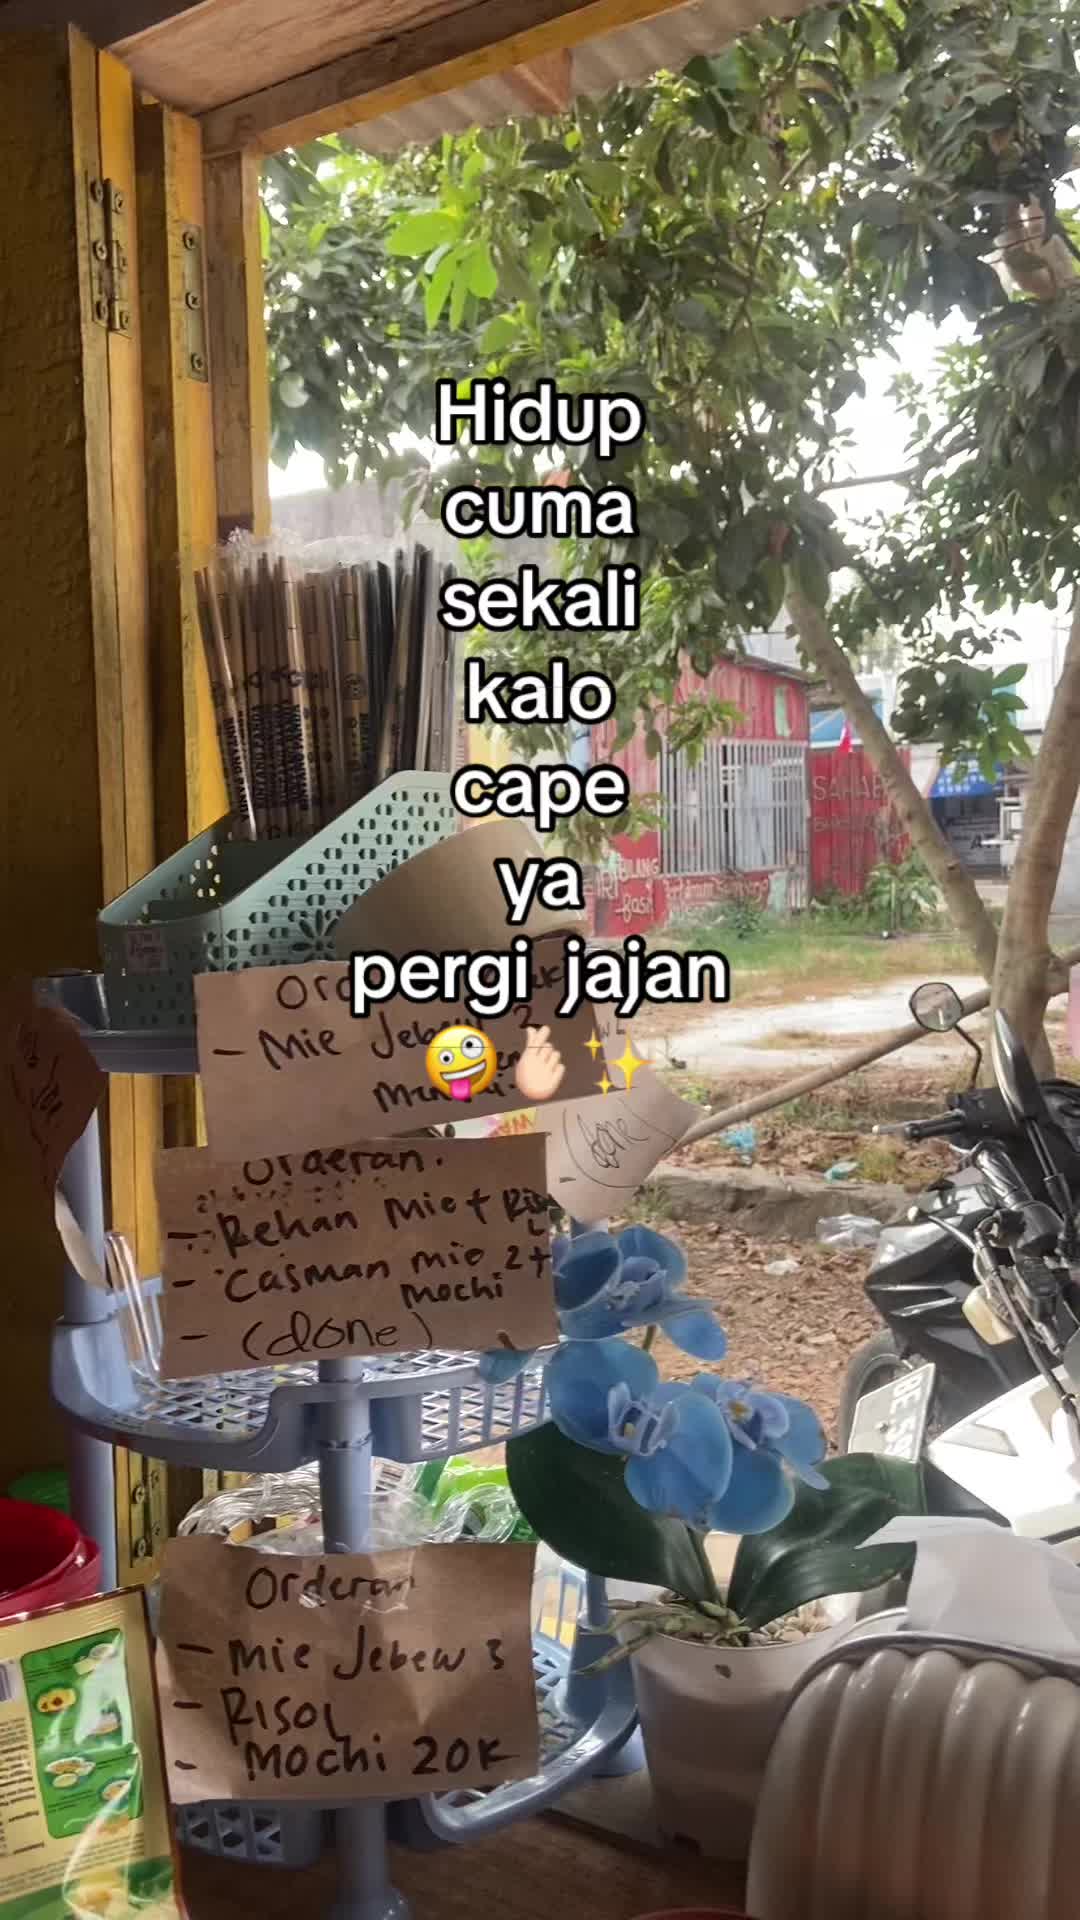 Hidup
cuma
sekali
kalo
cape
ya
pergi jajan
🤪🫰🏻✨
SAHAB
BILANG
- Mie Jebew 2
(done)
Orderan.
- Rehan Mie +
- Casman mie 2 +
Mochi
- (done)
BE 59
Orderan
- Mie Jebew 3
- RISOL
- Mochi 20K